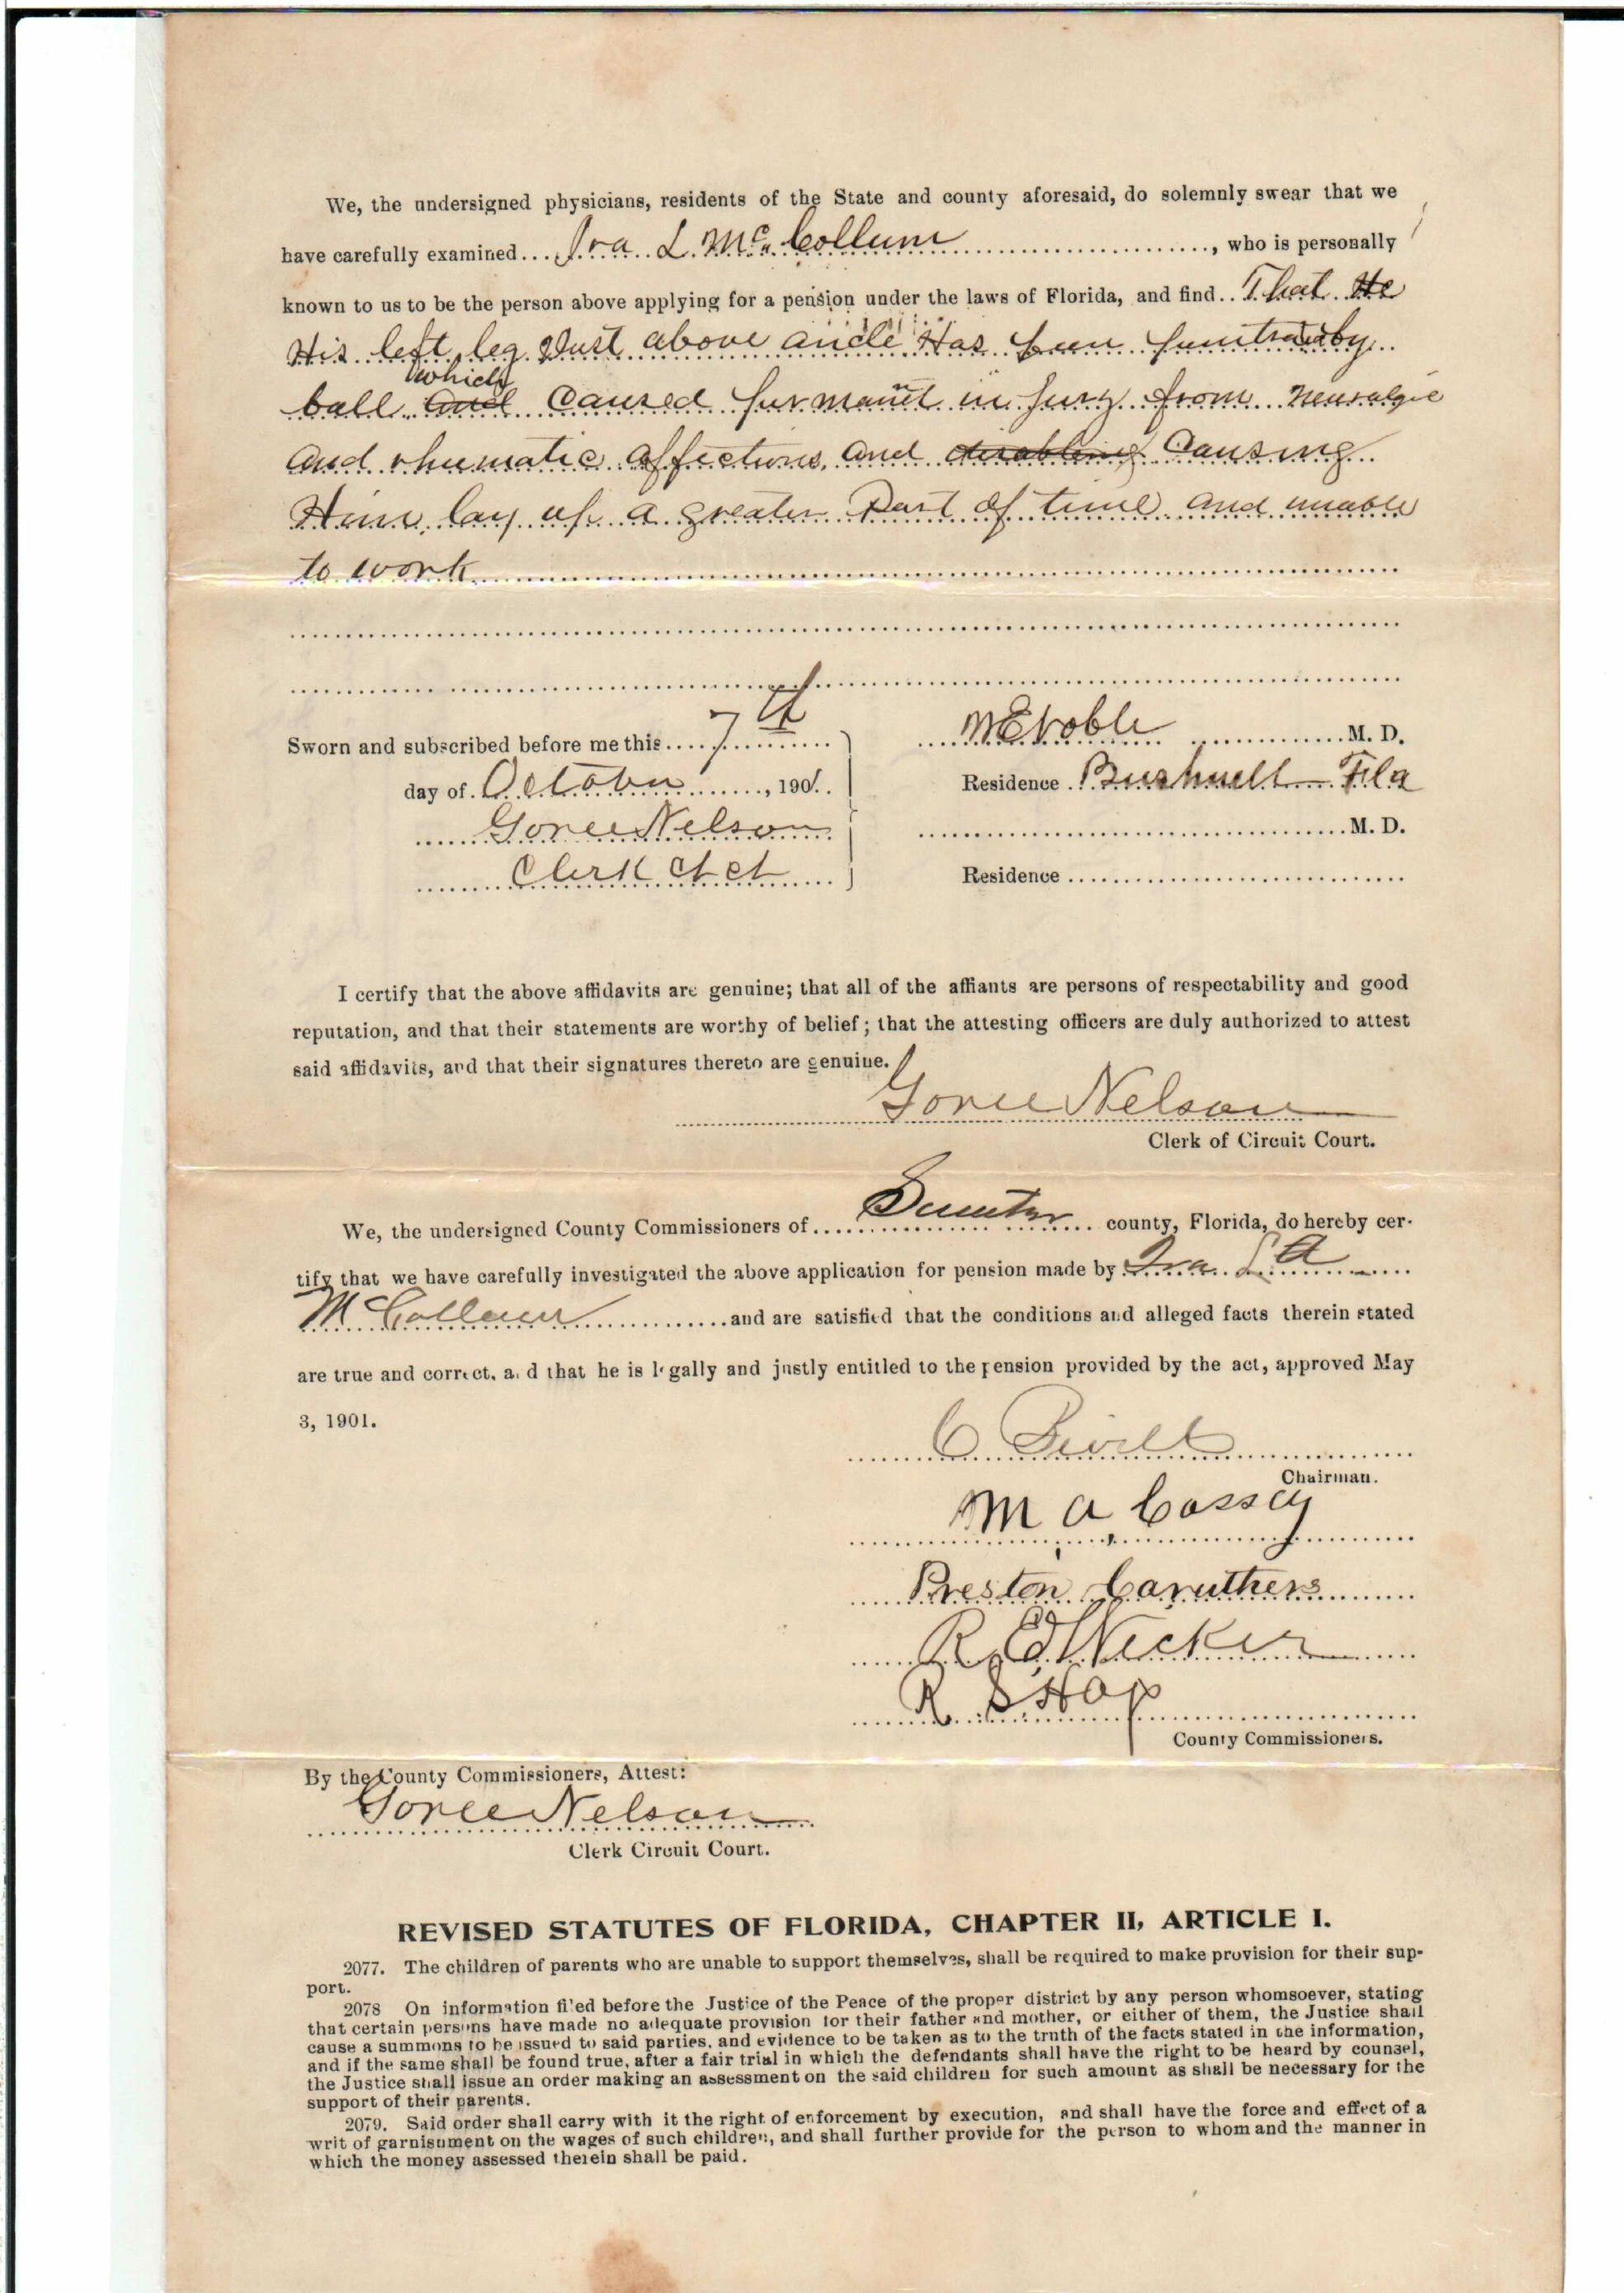 We, the undersigned physicians, residents of the State and county aforesaid, do solemnly swear that we
have carefully examined Ira L McCollum, who is personally
known to us to be the person above applying for a pension under the laws of Florida, and find That He
His left leg Just above ancle Has been penitrated by
which
ball and caused purmanent injury from neuralgic
and rhumatic affections and disabling causing
Him lay up a greater Part of time and unable
to work
Sworn and subscribed before me this 7th
day of October, 1901.
Goree Nelson
Clerk Ct Ct
M E Noble M. D.
Residence Bushnell Fla
M. D.
Residence
I certify that the above affidavits are genuine; that all of the affiants are persons of respectability and good
reputation, and that their statements are worthy of belief; that the attesting officers are duly authorized to attest
said affidavits, and that their signatures thereto are genuine.
Goree Nelson
Clerk of Circuit Court.
We, the undersigned County Commissioners of Sumter county, Florida, do hereby cer-
tify that we have carefully investigated the above application for pension made by Ira L A
McCollum and are satisfied that the conditions and alleged facts therein stated
are true and correct, and that he is legally and justly entitled to the pension provided by the act, approved May
3, 1901.
C
Chairman.
M A Cassey
Preston Caruthers
R E Wicker
R S Hap
County Commissioners.
By the County Commissioners, Attest:
Goree Nelson
Clerk Circuit Court.
REVISED STATUTES OF FLORIDA, CHAPTER II, ARTICLE I.
2077. The children of parents who are unable to support themselves, shall be required to make provision for their sup-
port.
2078 On information filed before the Justice of the Peace of the proper district by any person whomsoever, stating
that certain persons have made no adequate provision for their father and mother, or either of them, the Justice shall
cause a summons to be issued to said parties, and evidence to be taken as to the truth of the facts stated in the information,
and if the same shall be found true, after a fair trial in which the defendants shall have the right to be heard by counsel,
the Justice shall issue an order making an assessment on the said children for such amount as shall be necessary for the
support of their parents.
2079. Said order shall carry with it the right of enforcement by execution, and shall have the force and effect of a
writ of garnishment on the wages of such children, and shall further provide for the person to whom and the manner in
which the money assessed therein shall be paid.